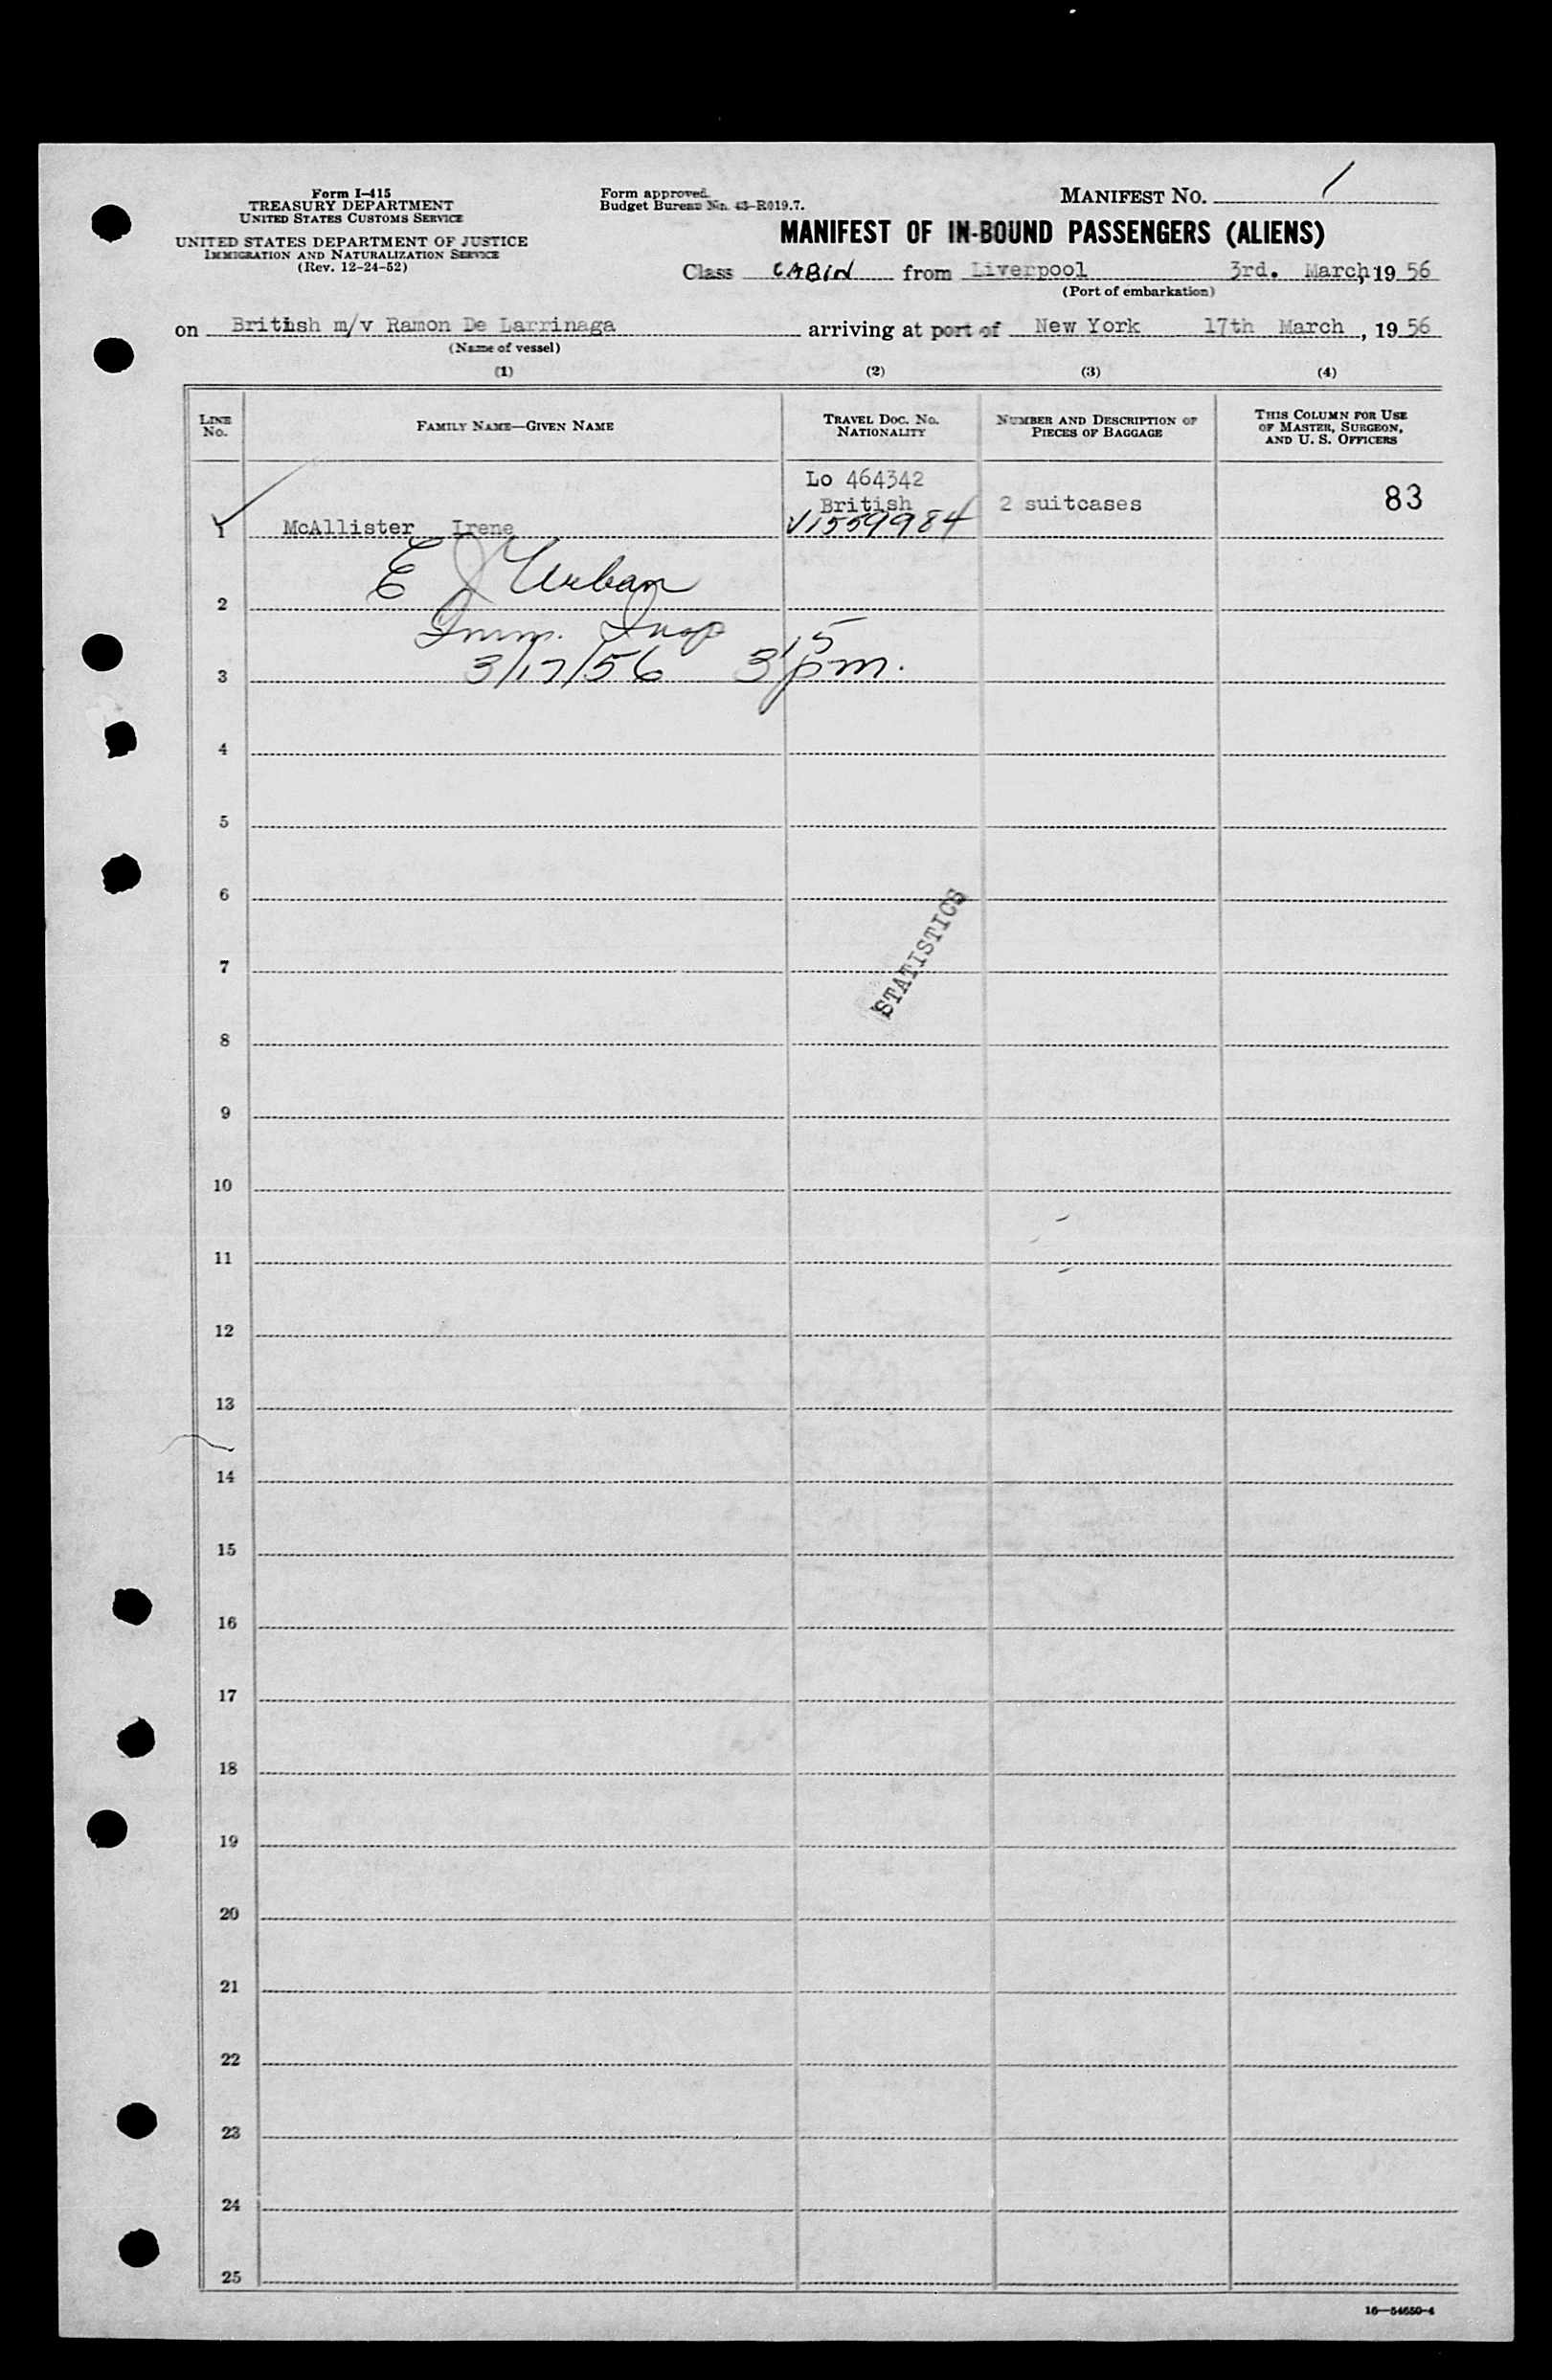 Form I-415
TREASURY DEPARTMENT
UNITED STATES CUSTOMS SERVICE
UNITED STATES DEPARTMENT OF JUSTICE
IMMIGRATION AND NATURALIZATION SERVICE
(Rev. 12-24-52)
Form approved.
Budget Bureau No. 43-R019.7.
MANIFEST NO. 1
MANIFEST OF IN-BOUND PASSENGERS (ALIENS)
Class CABIN from Liverpool 3rd. March, 19 56
(Port of embarkation)
on British m/v Ramon De Larrinaga arriving at port of New York 17th March, 19 56
(Name of vessel)
(1) (2) (3) (4)
LINE NO. FAMILY NAME—GIVEN NAME TRAVEL DOC. NO. NATIONALITY NUMBER AND DESCRIPTION OF PIECES OF BAGGAGE THIS COLUMN FOR USE OF MASTER, SURGEON, AND U. S. OFFICERS
Lo 464342
British 2 suitcases 83
1 McAllister Irene V1559984
E J Urban
2
Imm. Insp
3 3/17/56 3 15 pm.
4
5
6
STATISTICS
7
8
9
10
11
12
13
14
15
16
17
18
19
20
21
22
23
24
25
16—54650-4